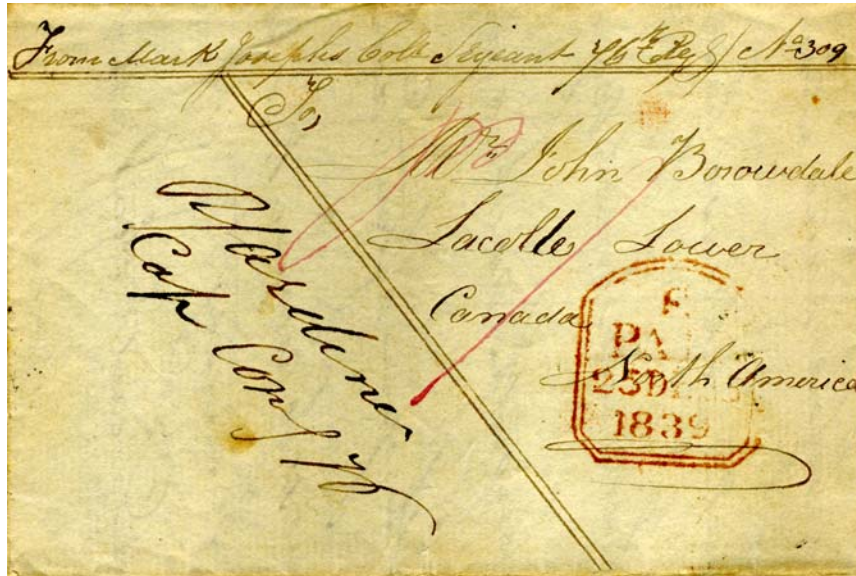 From Mark Josephs Colr Serjeant 76th Regt No 309
To,
Mr John Borowdale
Lacolle Lower
Canada
North America
PA
25 DE
1839
Cap Com 76